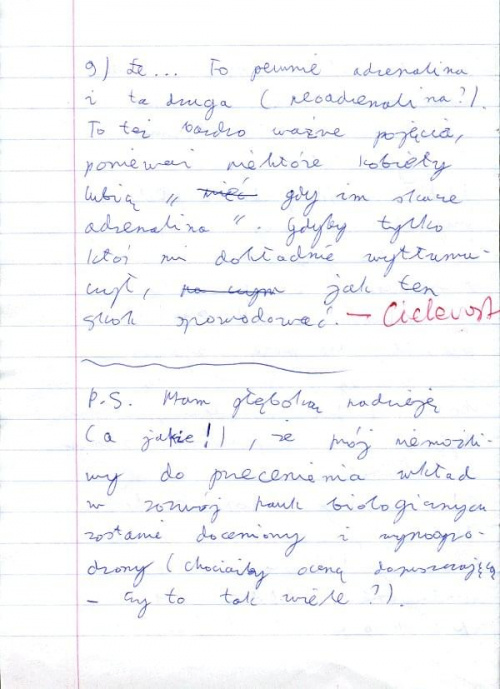 9) Że... To pewnie adrenalina
i ta druga (neoadrenalina?).
To też bardzo ważne pojęcia,
ponieważ niektóre kobiety
lubią „ mieć gdy im skacze
adrenalina ". Gdyby tylko
ktoś mi dokładnie wytłuma-
czył, na czym jak ten
skok spowodować. —
P.S. Mam głęboką nadzieję
(a jakże!), że mój niemożli-
wy do przecenienia wkład
w rozwój nauk biologicznych
zostanie doceniony i wynagro-
dzony (chociażby oceną dopuszczającą
– czy to tak wiele?).